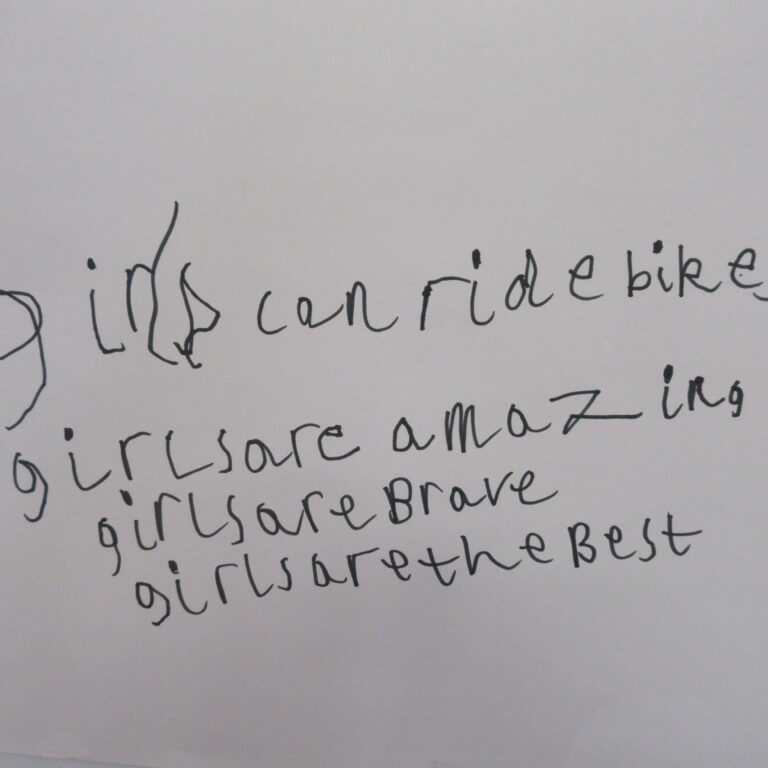 girls can ride bikes
girls are amazing
girls are Brave
girls are the Best